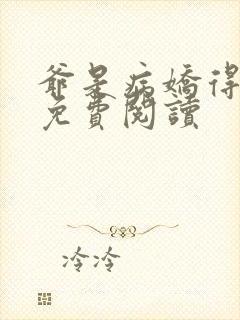 爺是病嬌得
免費閱讀
冷冷